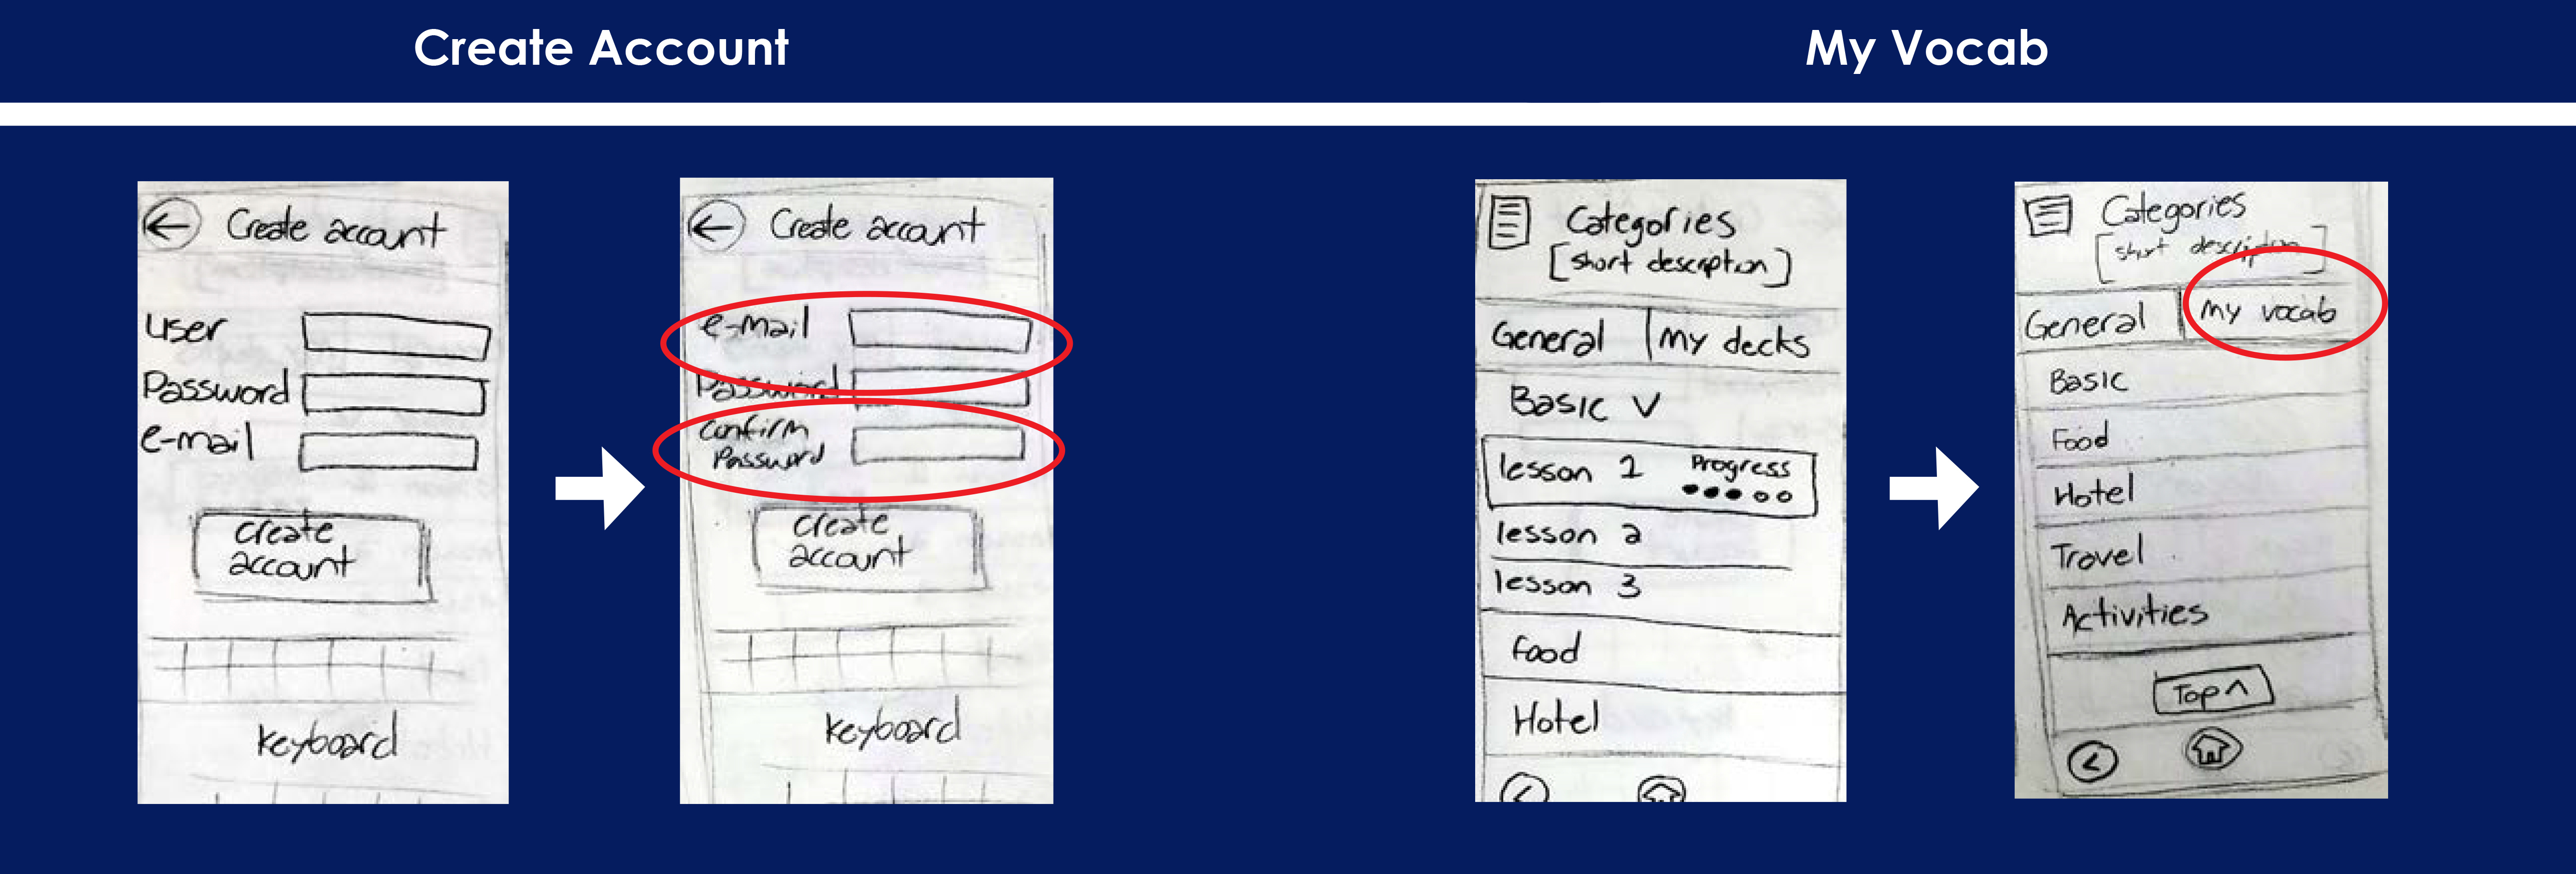 Create Account
My Vocab
Create account
user
Password
e-mail
create
account
keyboard
Create account
e-mail
Password
Confirm
Password
create
account
keyboard
Categories
[short description]
General My decks
Basic V
lesson 1 Progress
lesson 2
lesson 3
food
Hotel
Categories
[short description]
General My vocab
Basic
Food
Hotel
Travel
Activities
Top ^